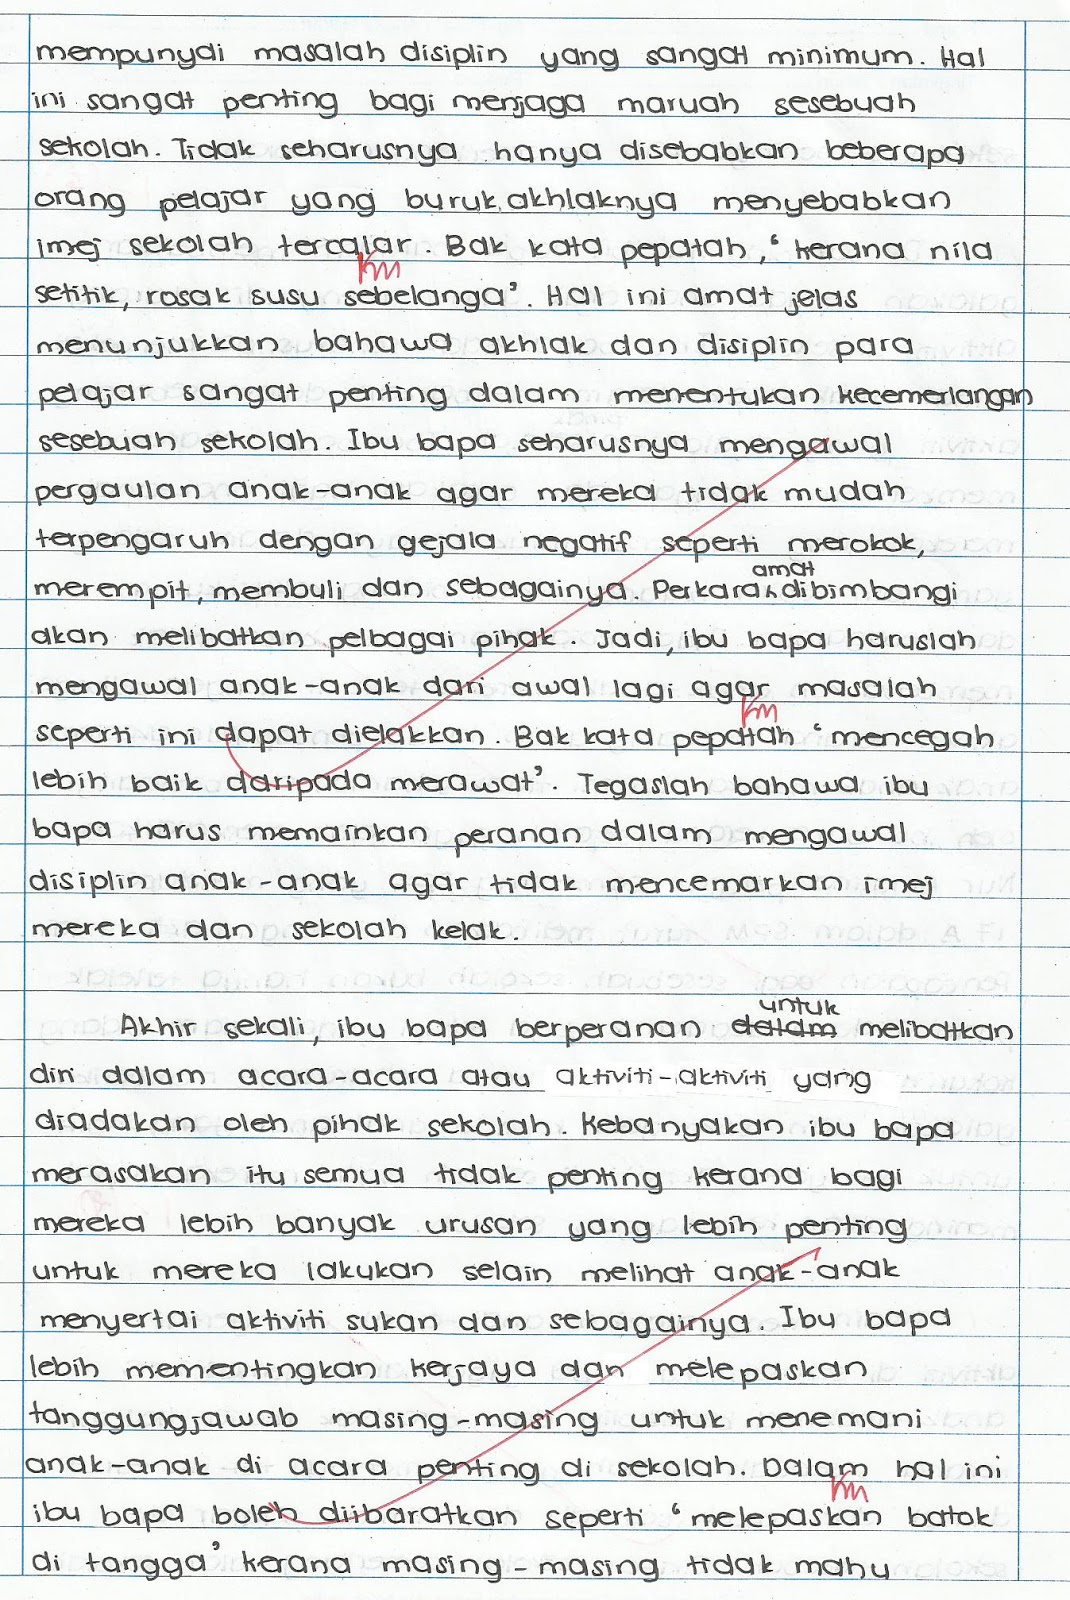 mempunyai masalah disiplin yang sangat minimum. Hal
ini sangat penting bagi menjaga maruah sesebuah
sekolah. Tidak seharusnya hanya disebabkan beberapa
orang pelajar yang buruk akhlaknya menyebabkan
imej sekolah tercalar. Bak kata pepatah, ‘kerana nila
Km
setitik, rosak susu sebelanga’. Hal ini amat jelas
menunjukkan bahawa akhlak dan disiplin para
pelajar sangat penting dalam menentukan kecemerlangan
sesebuah sekolah. Ibu bapa seharusnya mengawal
pergaulan anak-anak agar mereka tidak mudah
terpengaruh dengan gejala negatif seperti merokok,
amat
merempit, membuli dan sebagainya. Perkara dibimbangi
akan melibatkan pelbagai pihak. Jadi, ibu bapa haruslah
mengawal anak-anak dari awal lagi agar masalah
Km
seperti ini dapat dielakkan. Bak kata pepatah ‘mencegah
lebih baik daripada merawat’. Tegaslah bahawa ibu
bapa harus memainkan peranan dalam mengawal
disiplin anak-anak agar tidak mencemarkan imej
mereka dan sekolah kelak.
untuk
Akhir sekali, ibu bapa berperanan dalam melibatkan
diri dalam acara-acara atau aktiviti-aktiviti yang
diadakan oleh pihak sekolah. Kebanyakan ibu bapa
merasakan itu semua tidak penting kerana bagi
mereka lebih banyak urusan yang lebih penting
untuk mereka lakukan selain melihat anak-anak
menyertai aktiviti sukan dan sebagainya. Ibu bapa
lebih mementingkan kerjaya dan melepaskan
tanggungjawab masing-masing untuk menemani
anak-anak di acara penting di sekolah. Dalam hal ini
Km
ibu bapa boleh diibaratkan seperti ‘melepaskan batok
di tangga’ kerana masing-masing tidak mahu